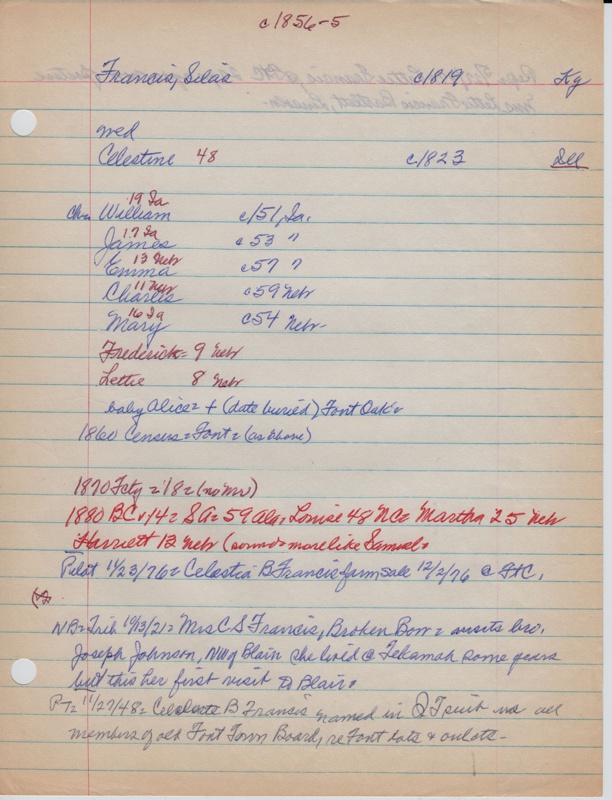 c/1856-5
Francis, Silas c/1819 Ky
wed
Celestine 48 c/1823 Del
19 Ia
chn William c/51, Ia.
17 Ia
James c 53 "
13 Nebr
Emma c57 "
11 Nebr
Charles c59 Nebr
16 Ia
Mary c54 Nebr-
Frederick= 9 Nebr
Lettie 8 Nebr
baby Alice= + (date buried) Font Oak
1860 Census= Font= (as above)
1870 Fcty = 18 = (no Mr)
1880 BC 14= SA= 59 Ala= Louise 48 NC= Martha 25 Nebr
Harriett 12 Nebr (sounds more like Samuel=
Pilot 11/23/76= Celestia B Francis farm sale 12/2/76 @ FtC.
NB= Trib 10/13/21= Mrs C S Francis, Broken Bow= visits bro.
Joseph Johnson, NW of Blair she lived @ Tekamah some years
but this her first visit to Blair=
PT= 11/27/48= B Francis named in QT suit vs all
members of old Font Town Board, re Font lots & outlots-